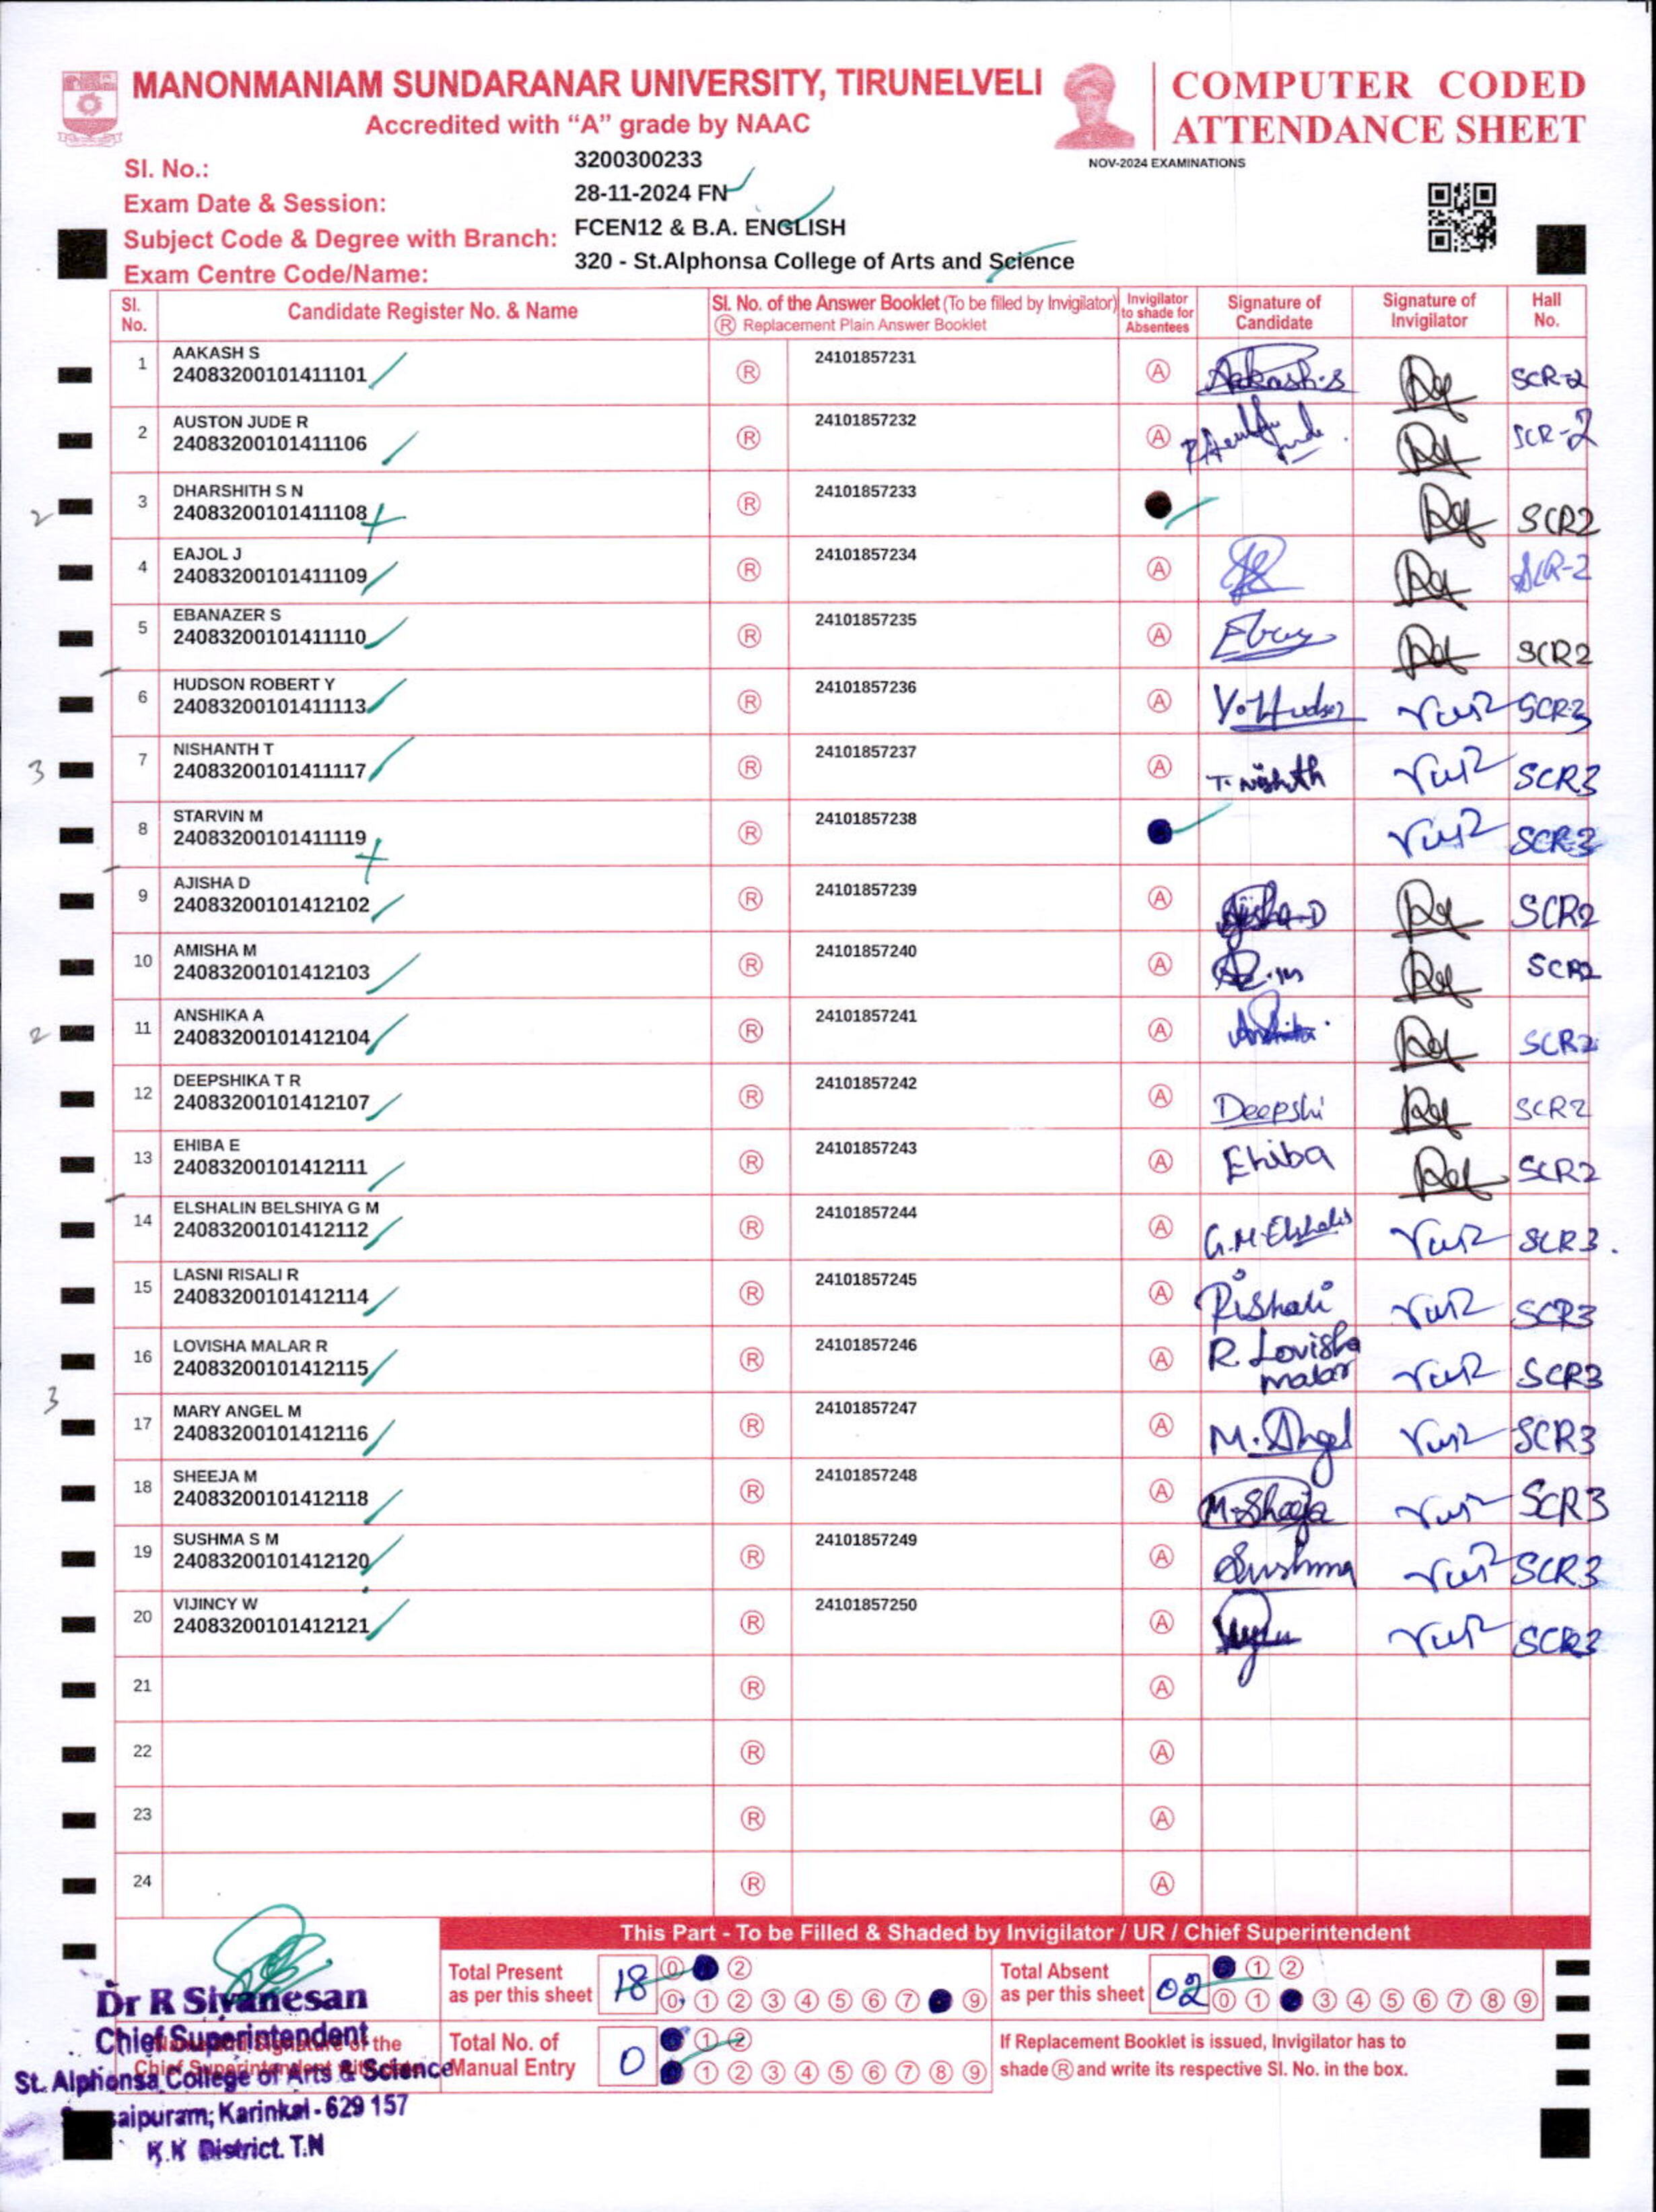 MANONMANIAM SUNDARANAR UNIVERSITY, TIRUNELVELI
Accredited with “A” grade by NAAC
COMPUTER CODED
ATTENDANCE SHEET
NOV-2024 EXAMINATIONS
Sl. No.: 3200300233
Exam Date & Session: 28-11-2024 FN
Subject Code & Degree with Branch: FCEN12 & B.A. ENGLISH
Exam Centre Code/Name: 320 - St.Alphonsa College of Arts and Science
Sl. No. Candidate Register No. & Name Sl. No. of the Answer Booklet (To be filled by Invigilator) Ⓡ Replacement Plain Answer Booklet Invigilator to shade for Absentees Signature of Candidate Signature of Invigilator Hall No.
1 AAKASH S 24101857231
24083200101411101 Ⓡ Ⓐ Aakash.s SCR-2
2 AUSTON JUDE R 24101857232
24083200101411106 Ⓡ Ⓐ SCR-2
3 DHARSHITH S N 24101857233
2 24083200101411108 Ⓡ SCR2
4 EAJOL J 24101857234
24083200101411109 Ⓡ Ⓐ SCR-2
5 EBANAZER S 24101857235
24083200101411110 Ⓡ Ⓐ SCR2
6 HUDSON ROBERT Y 24101857236
24083200101411113 Ⓡ Ⓐ SCR3
7 NISHANTH T 24101857237
3 24083200101411117 Ⓡ Ⓐ SCR3
8 STARVIN M 24101857238
24083200101411119 Ⓡ SCR3
9 AJISHA D 24101857239
24083200101412102 Ⓡ Ⓐ SCR2
10 AMISHA M 24101857240
24083200101412103 Ⓡ Ⓐ SCR2
11 ANSHIKA A 24101857241
2 24083200101412104 Ⓡ Ⓐ SCR2
12 DEEPSHIKA T R 24101857242
24083200101412107 Ⓡ Ⓐ Deepshi SCR2
13 EHIBA E 24101857243
24083200101412111 Ⓡ Ⓐ Ehiba SCR2
14 ELSHALIN BELSHIYA G M 24101857244
24083200101412112 Ⓡ Ⓐ SCR3.
15 LASNI RISALI R 24101857245
24083200101412114 Ⓡ Ⓐ Rishali SCR3
16 LOVISHA MALAR R 24101857246
24083200101412115 Ⓡ Ⓐ R. Lovisha malar SCR3
3
17 MARY ANGEL M 24101857247
24083200101412116 Ⓡ Ⓐ M. Angel SCR3
18 SHEEJA M 24101857248
24083200101412118 Ⓡ Ⓐ M. Sheeja SCR3
19 SUSHMA S M 24101857249
24083200101412120 Ⓡ Ⓐ Sushma SCR3
20 VIJINCY W 24101857250
24083200101412121 Ⓡ Ⓐ SCR3
21 Ⓡ Ⓐ
22 Ⓡ Ⓐ
23 Ⓡ Ⓐ
24 Ⓡ Ⓐ
This Part - To be Filled & Shaded by Invigilator / UR / Chief Superintendent
Total Present as per this sheet 18 ⓪ ②
⓪ ① ② ③ ④ ⑤ ⑥ ⑦ ⑨
Total Absent as per this sheet 02 ① ②
⓪ ① ③ ④ ⑤ ⑥ ⑦ ⑧ ⑨
Total No. of Manual Entry 0 ① ②
① ② ③ ④ ⑤ ⑥ ⑦ ⑧ ⑨
If Replacement Booklet is issued, Invigilator has to
shade Ⓡ and write its respective Sl. No. in the box.
Dr R Sivanesan
Chief Superintendent
St. Alphonsa College of Arts & Science
Karinkal - 629 157
K.K District. T.N